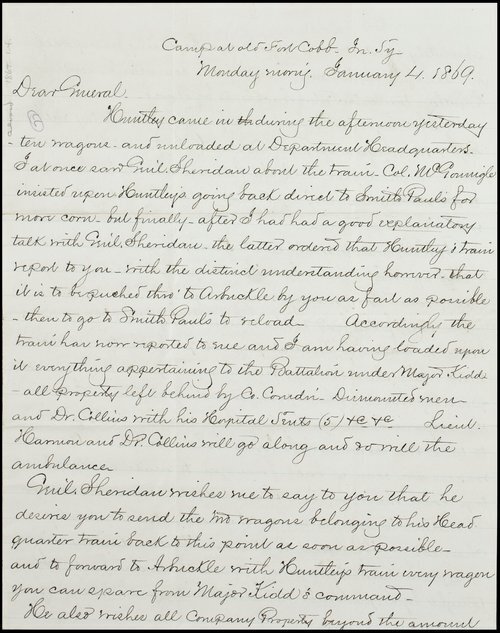 Camp at old Fort Cobb. In. Ty.
Monday morng. January 4. 1869.
Dear General.
Huntley came in th during the afternoon yesterday
ten wagons - and unloaded at Department Headquarters.
I at once saw Genl. Sheridan about the train. Col. McGonnigle
insisted upon Huntleys going back direct to Smith Paul's for
more corn - but finally - after I had had a good explanatory
talk with Genl. Sheridan - the latter ordered that Huntley's train
report to you - with the distinct understanding however - that
it is to be pushed thro' to Arbuckle by you as fast as possible
- then to go to Smith Paul's to reload - Accordingly the
train has now reported to me and I am having loaded upon
it everything appertaining to the Battalion under Major Kidd
- all property left behind by Co. Comdrs. Dismounted men
and Dr. Collins with his Hospital Tents (5) &c &c Lieut.
Harmon and Dr. Collins will go along and so will the
ambulance
Genl. Sheridan wishes me to say to you that he
desires you to send the two wagons belonging to his Head
quarter train back to this point as soon as possible -
and to forward to Arbuckle with Huntley's train every wagon
you can spare from Major Kidd's command -
He also wishes all Company Property beyond the amount